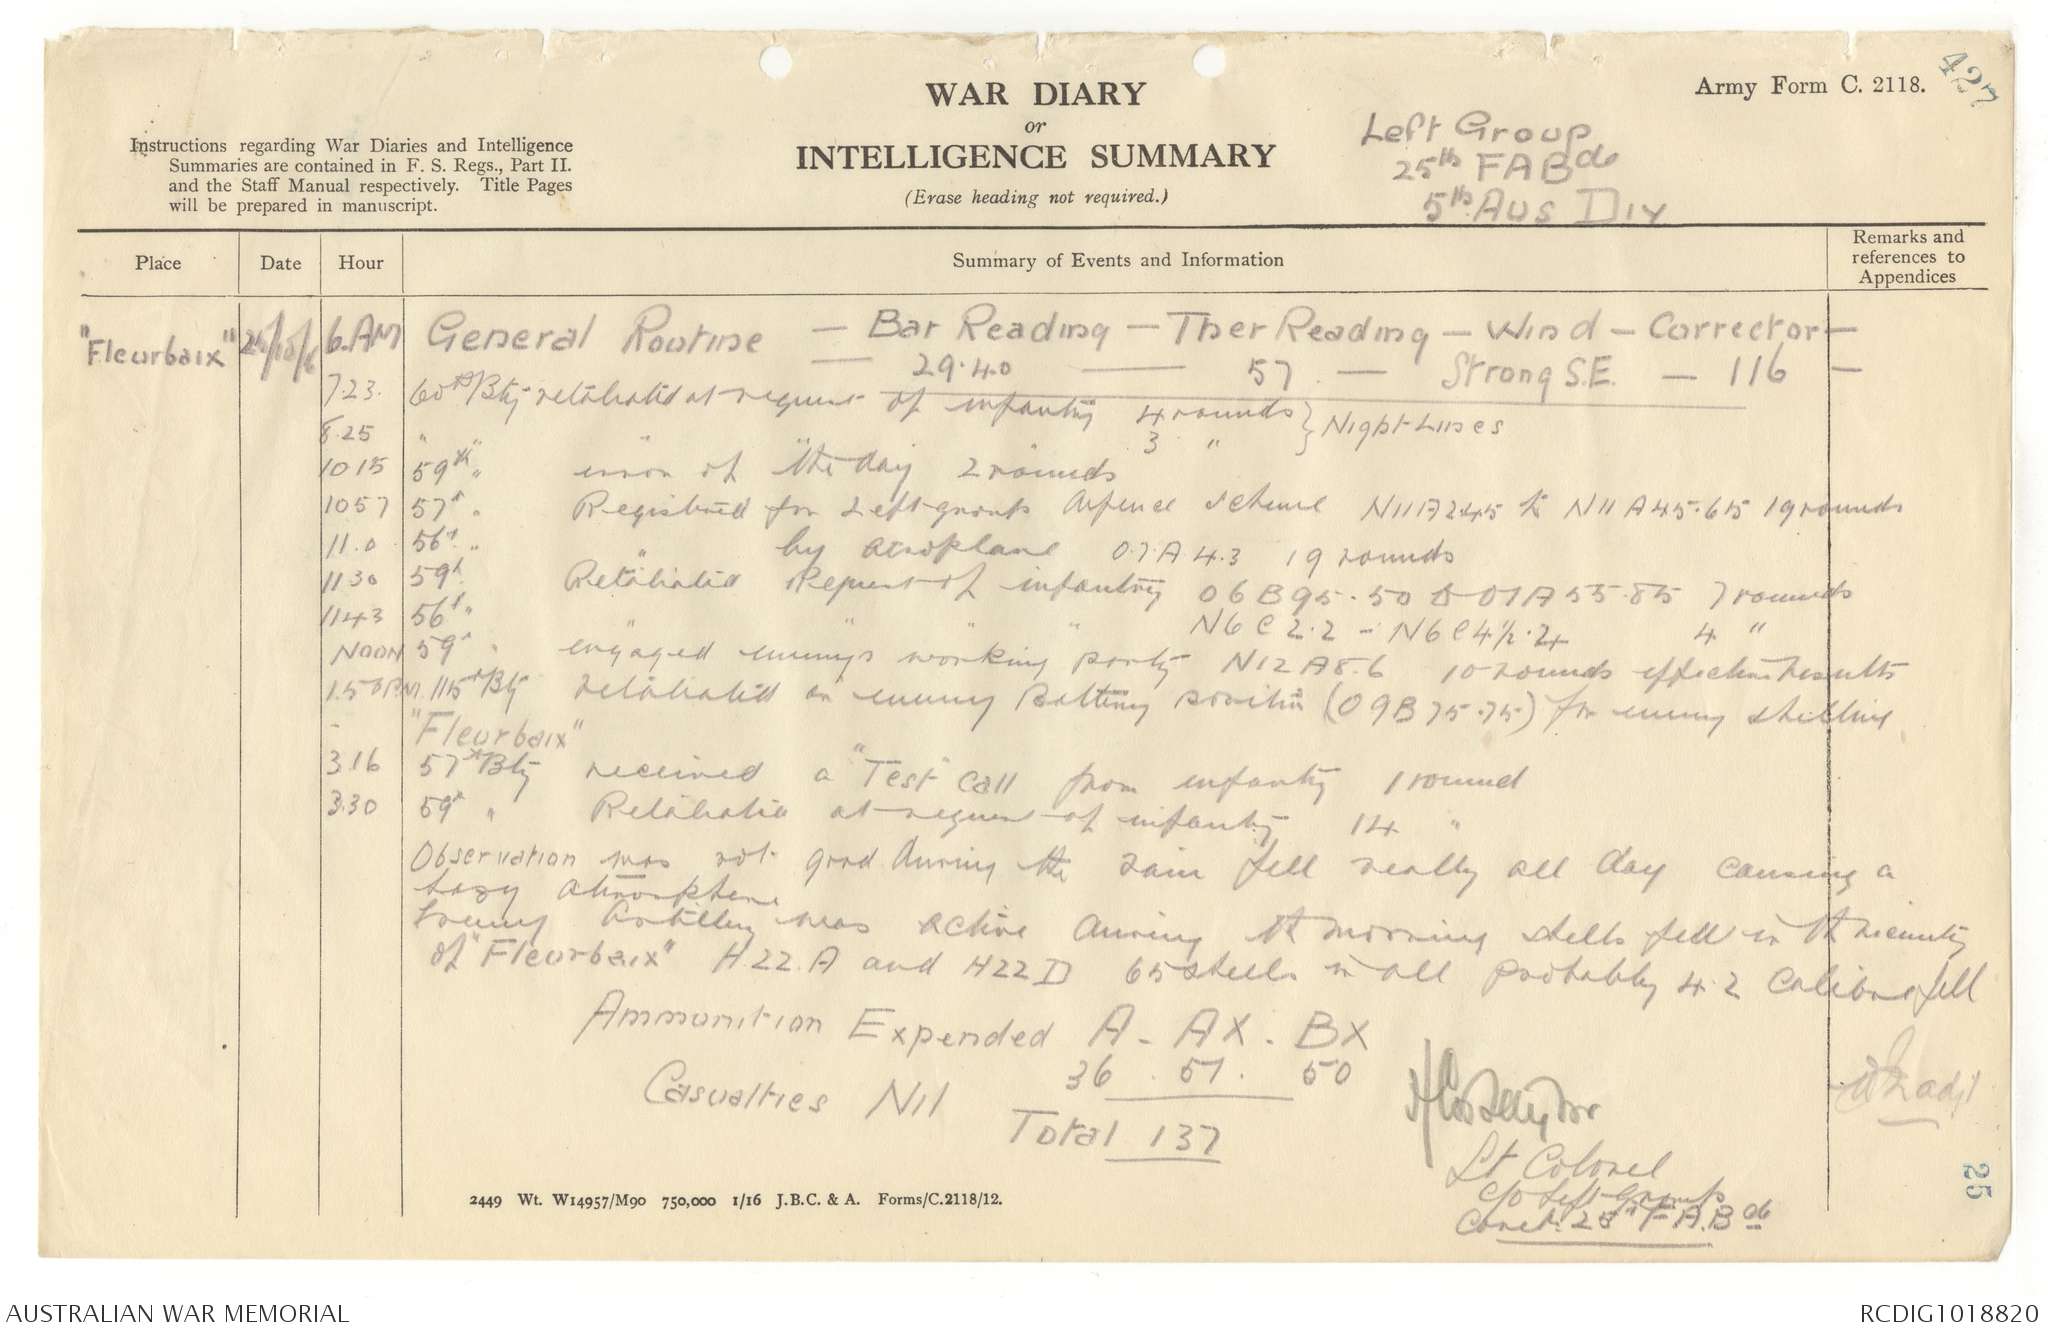 427
WAR DIARY
or
INTELLIGENCE SUMMARY
(Erase heading not required.)
Army Form C. 2118.
Instructions regarding War Diaries and Intelligence
Summaries are contained in F. S. Regs., Part II.
and the Staff Manual respectively. Title Pages
will be prepared in manuscript.
Left Group
25th FABde
5th Aus Div
Place Date Hour Summary of Events and Information Remarks and references to Appendices
"Fleurbaix" 6.AM General Routine — Bar Reading — Ther Reading — Wind — Corrector —
— 29.40 — 57 — Strong S.E. — 116 —
7.23. 60th Bty retaliated at request of infantry 4 rounds } Night Lines
8.25 " " " 3 "
10 15 59th " error of the day 2 rounds
10 57 57th " Registered for Left group defence scheme N11A24.5 to N11A45.65 19 rounds
11.0 56th " " by aeroplane O.7.A.4.3 19 rounds
11 30 59th Retaliated Request of infantry O6B95.50 to O7A55.85 7 rounds
11 43 56th " " " " " N6C2.2 - N6C4½.2 4 "
NOON 59th " engaged enemys working party N12A8.6 10 rounds effective results
1.50PM. 115th Bty retaliated on enemy Battery position (O9B75.75) for enemy shelling
"Fleurbaix"
3 16 57th Bty received a "Test" call from infantry 1 round
3.30 59th " Retaliated at request of infantry 14 "
Observation was not good during the rain fell really all day causing a
hazy atmosphere
Enemy Artillery was active during the morning shells fell in the vicinity
of "Fleurbaix" H.22.A and H22D 65 shells in all probably 4.2 Calibre fell
Ammunition Expended A - AX - BX
36 . 51 . 50
Casualties Nil
Total 137
Lt Colonel
c/o Left Group
25th F.A.Bde
adjt
25
2449 Wt. W14957/M90 750,000 1/16 J.B.C. & A. Forms/C.2118/12.
AUSTRALIAN WAR MEMORIAL
RCDIG1018820